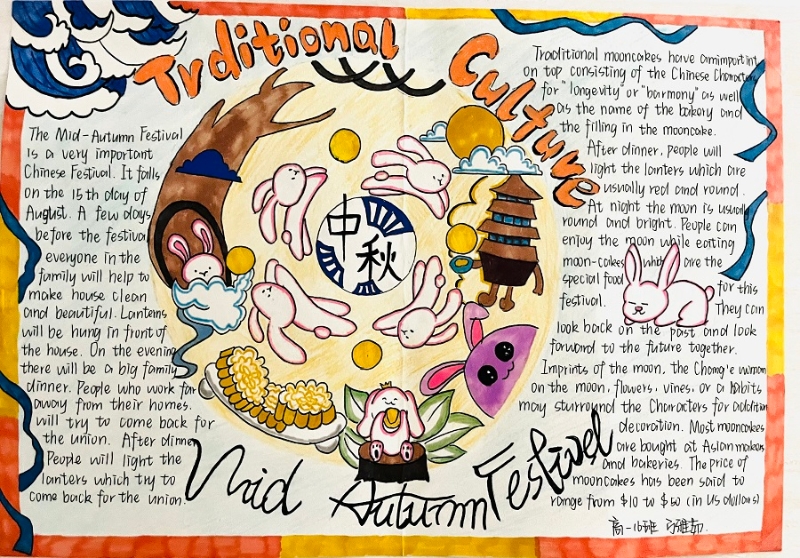 Trditional
Culture
The Mid-Autumn Festival
is a very important
Chinese Festival. It falls
on the 15th day of
August. A few days
before the festival
everyone in the
family will help to
make house clean
and beautiful. Lanterns
will be hung in front of
the house. On the evening
there will be a big family
dinner. People who work far
away from their homes.
will try to come back for
the union. After dinne
People will light the
lanters which try to
come back for the union.
中秋
Traditional mooncakes have an import int
on top consisting of the Chinese Characters
for "longevity" or "barmony" as well
as the name of the bakory and
the filling in the mooncake.
After dinner, people will
light the lanters which are
usually red and round.
At night the moon is usually
round and bright. People can
enjoy the moon while eating
moon-cakes which are the
special food for this
festival. They can
look back on the past and look
forward to the future together.
Imprints of the moon, the Chang'e woman
on the moon, flowers, vines, or a Habits
may sturround the Characters for addition
decoration. Most mooncakes
are bought at Asian makers
and bakeries. The price of
mooncakes has been said to
range from $10 to $50 (in US dollars)
Mid Autumn Festivel
高一16班